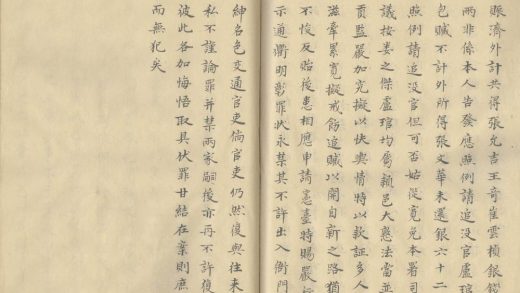 賑濟外計共得張允吉王奇崔雲楨銀鐲
兩非係本人告發應照例請追没官盧琯
包贓不計外所得張文華未還銀六十二
照例請追没官但可否姑從寛免本署司
議按婁之傑盧琯均屬頴邑大憝法當並
貢監嚴加究擬以快輿情特以款証多人
滋牽累寛擬戒飭追贓以開自新之路猶
不悛反貽後患相應申請憲臺特賜嚴行
示通衢明彰罪狀永禁其不許出入衙門
紳名色交通官吏倘官吏仍然復與往來
私不謹論罪并禁兩家嗣後亦再不許復
彼此各加悔悟取具伏罪甘結在案則庶
而無犯矣